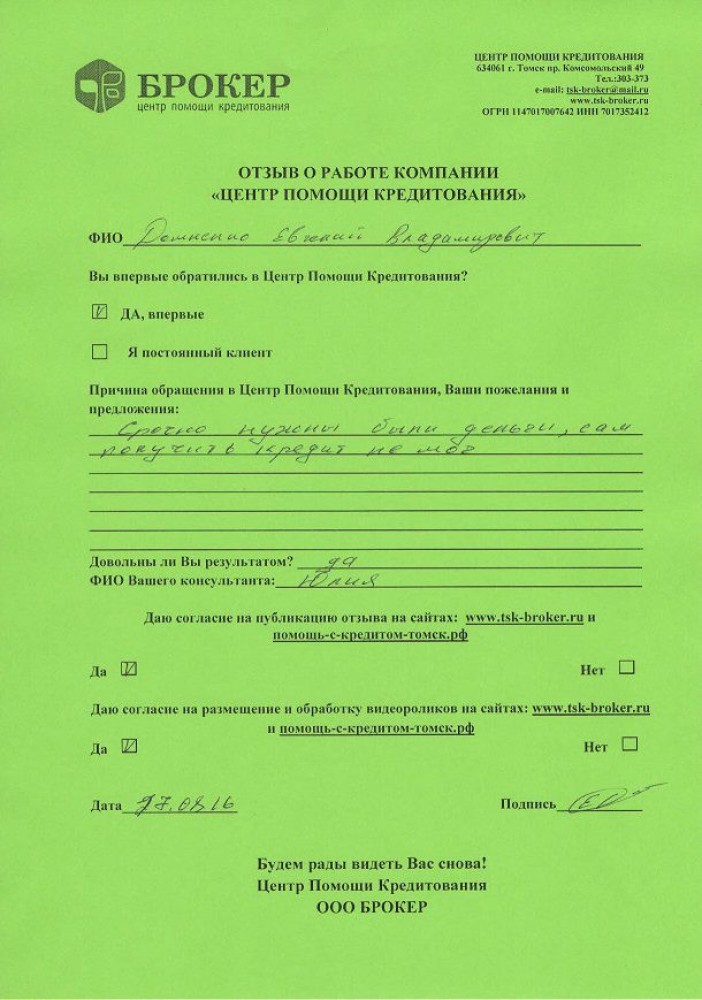 БРОКЕР
центр помощи кредитования
ЦЕНТР ПОМОЩИ КРЕДИТОВАНИЯ
634061 г. Томск пр. Комсомольский 49
Тел.:303-373
e-mail: tsk-broker@mail.ru
www.tsk-broker.ru
ОГРН 1147017007642 ИНН 7017352412
ОТЗЫВ О РАБОТЕ КОМПАНИИ
«ЦЕНТР ПОМОЩИ КРЕДИТОВАНИЯ»
ФИО Евгений Владимирович
Вы впервые обратились в Центр Помощи Кредитования?
ДА, впервые
Я постоянный клиент
Причина обращения в Центр Помощи Кредитования, Ваши пожелания и
предложения:
Срочно нужны были деньги, сам
получить кредит не мог
Довольны ли Вы результатом? да
ФИО Вашего консультанта: Юлия
Даю согласие на публикацию отзыва на сайтах: www.tsk-broker.ru и
помощь-с-кредитом-томск.рф
Да Нет
Даю согласие на размещение и обработку видеороликов на сайтах: www.tsk-broker.ru
и помощь-с-кредитом-томск.рф
Да Нет
Дата Подпись
Будем рады видеть Вас снова!
Центр Помощи Кредитования
ООО БРОКЕР